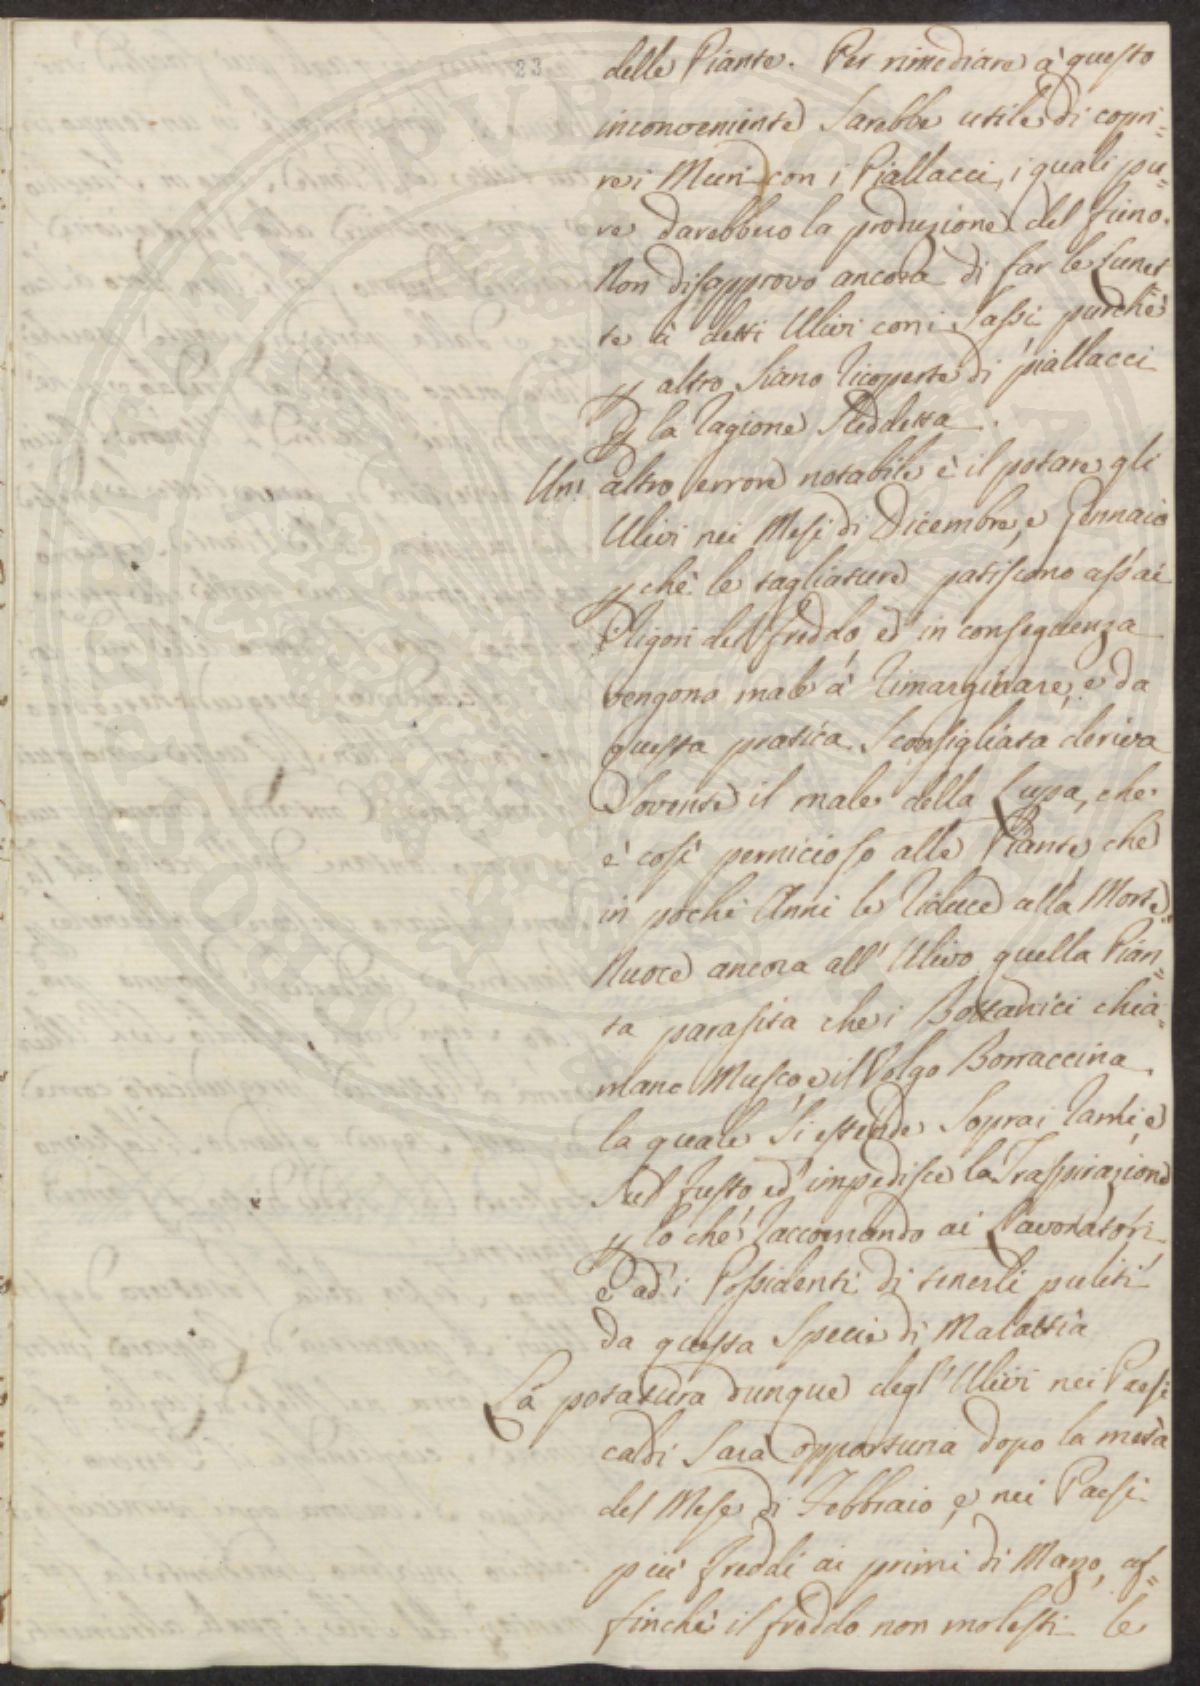 23
delle Piante. Per rimediare à questo
inconveniente sarebbe utile di copri=
re i Muri con i Piallacci, i quali pu=
re darebbero la produzione del fieno.
Non disapprovo ancora di far le Lunet
te à detti Ulivi con i Sassi purchè
p altro siano ricoperte di piallacci
p la ragione suddetta.
Un' altro errore notabile è il potare gli
Ulivi nei Mesi di Dicembre, e Gennaio
p chè le tagliature patiscono assai
i rigori del freddo, ed in conseguenza
vengono male à rimarginare, e da
questa pratica sconsigliata deriva
sovente il male della Lupa, che
è così pernicioso alle Piante, che
in pochi Anni le riduce alla Morte.
Nuoce ancora all' Ulivo quella Pian=
ta parasita che i Bottanici chia=
mano Musco, e il Volgo Borraccina.
la quale si estende sopra i rami, e
sul fusto ed impedisce la Traspirazione
p lo che raccomando ai Lavoratori
e ad i Possidenti di tenerli puliti
da questa specie di Malattia
La potatura dunque degl' Ulivi nei Paesi
caldi sarà opportuna dopo la metà
del Mese di Febbraio, e nei Paesi
più freddi ai primi di Marzo, af=
finchè il freddo non molesti le